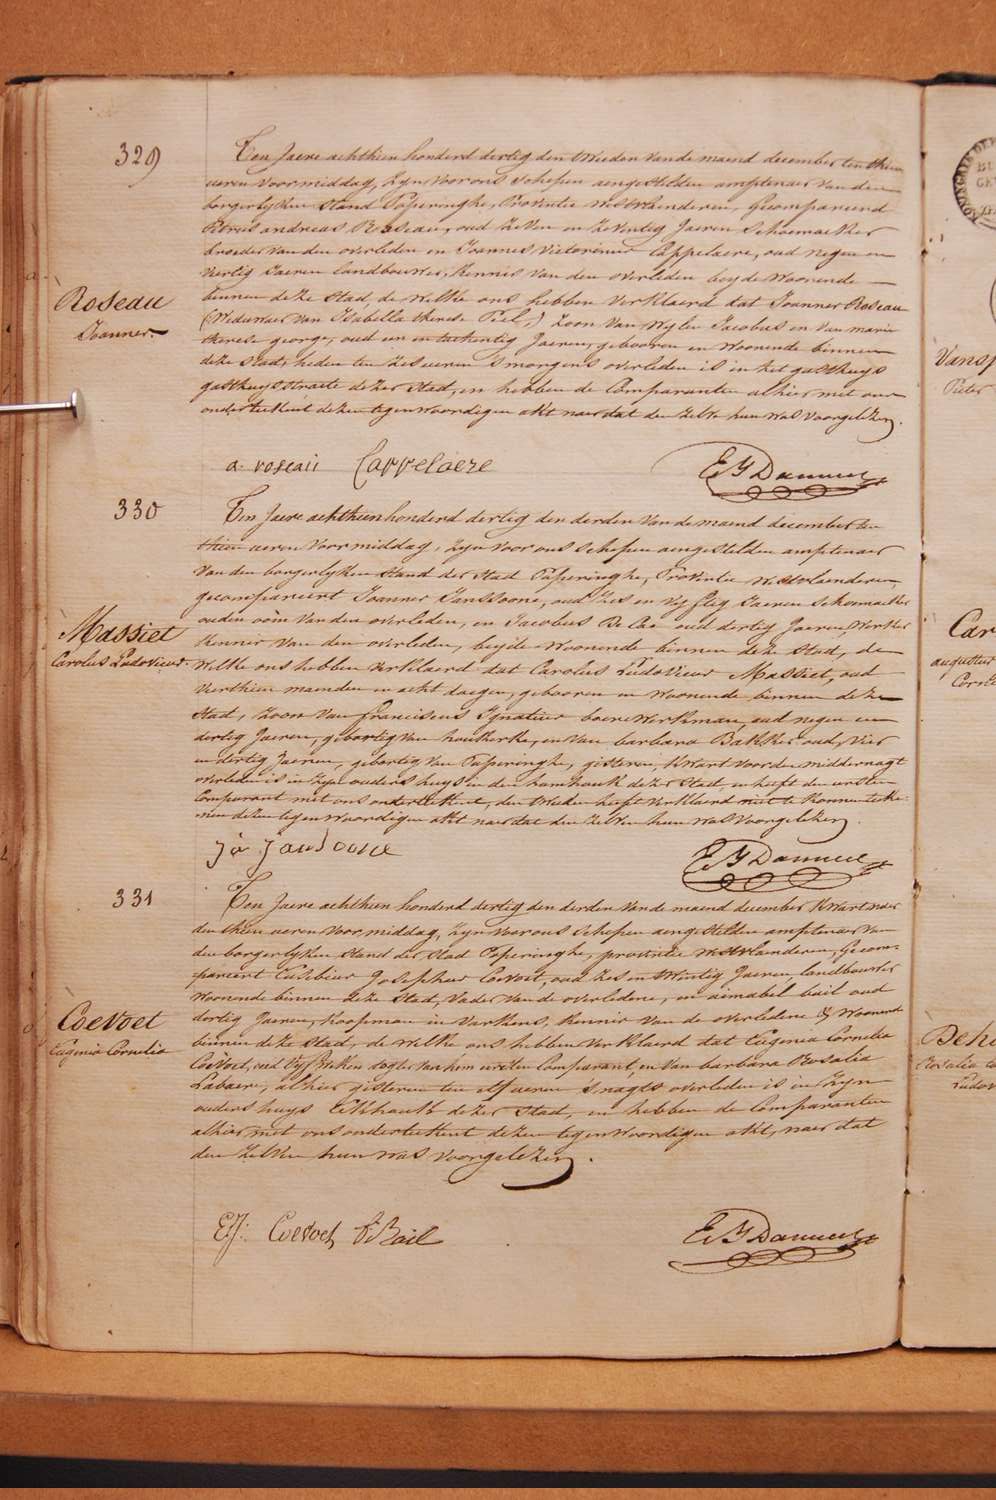 329
Ten Jaere achthien honderd dertig den tweeden van de maend december ten thien
ueren voormiddag, zyn voor ons schepen aengestelden amptenaer van den
borgerlyken stand Poperinghe, Provintie Westvlaenderen, Gecompareerd
Petrus andreas Roseau, oud zeven en zeventig Jaeren Schoemaeker
broeder van den overleden en Joannes Victorinus Cappelaere, oud negen en
veertig Jaeren landbouwer, kennis van den overleden beyde woonende
binnen deze stad, de welke ons hebben verklaerd dat Joannes Roseau
(Weduwaer van Isabella therese Piel,) zoon van wylen Jacobus en van marie
therese george, oud een en tachentig Jaeren, gebooren en woonende binnen
deze stad, heden ten zes ueren s'morgens overleden is in het gasthuys
gasthuys straete dezer stad, en hebben de Comparanten alhier met ons
onderteekent dezen tegenwoordigen akt naer dat den zelven hun was voorgelezen.
Roseau
Joannes
a roseau Cappelaere
330
Ten Jaere achthien honderd dertig den derden van de maend december ten
thien ueren voormiddag, zyn voor ons schepen aengestelden amptenaer
van den borgerlyken stand der stad Poperinghe, Provintie Westvlaenderen
gecompareert Joannes Janssoone, oud zes en vyftig Jaeren Schoemaeker
ouden oom van den overleden, en Jacobus De Cae oud dertig Jaeren, werker
kennis van den overleden, beyde woonende binnen deze stad, de
welke ons hebben verklaerd dat Carolus Ludovicus Massiet, oud
verthien maenden en acht daegen, gebooren en woonende binnen deze
stad, zoon van franciscus Ignatius boere werkman, oud negen en
dertig Jaeren, gebortig van houtkerke, en van barbara Bakker oud, vier
en dertig Jaeren, gebortig van Poperinghe, gisteren, kwart voor den middernagt
overleden is in zyn ouders huys in den hamhouk dezer stad, en heeft den eersten
Comparant met ons onderteekent, den tweeden heeft verklaerd niet te konnen teeke-
nen dezen tegenwoordigen akt naer dat den zelven hun was voorgelezen.
Massiet
Carolus Ludovicus
331
Ten Jaere achthien honderd dertig den derden van de maend december kwart naer
den thien ueren voormiddag, zyn voor ons schepen aengestelden amptenaer van
den borgerlyken stand der stad Poperinghe, provintie Westvlaenderen, Gecom-
pareert Eusebius Josephus Coevoet, oud zes en twintig Jaeren, landbouwer
woonende binnen deze stad, vader van de overledene, en aimabel bail oud
dertig Jaeren, koopman in varkens, kennis van de overledene & woonende
binnen deze stad, de welke ons hebben verklaerd dat Eugenia Cornelia
Coevoet, oud vyf weken dogter van hem eersten Comparant, en van barbara Rosalia
Labaere, alhier gisteren ten elf ueren s'nagts overleden is in zyn
ouders huys Eekhoutb dezer stad, en hebben de Comparanten
alhier met ons onderteekent dezen tegenwoordigen akt, naer dat
den zelven hun was voorgelezen.
Coevoet
Eugenia Cornelia
EJ: Coevoet Bail